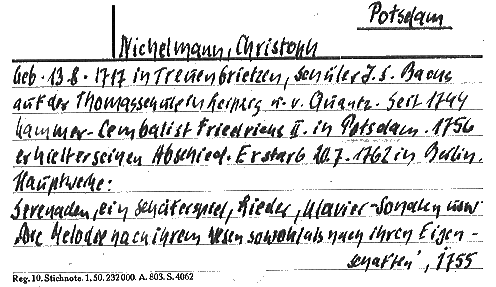 Potsdam
Nichelmann, Christoph
geb. 13.8.1717 in Treuenbrietzen, Schüler J.S. Bachs
auf der Thomasschule in Leipzig u. v. Quantz. Seit 1744
Kammer-Cembalist Friedrichs II. in Potsdam. 1756
erhielt er seinen Abschied. Er starb 20.7.1762 in Berlin.
Hauptwerke:
Serenaden, ein Schäferspiel, Lieder, Klavier-Sonaten usw
"Die Melodie nach ihrem Wesen sowohl als nach ihren Eigen-
schaften", 1755
Reg. 10. Stichnote. 1. 50. 232000. A. 803. S. 4062